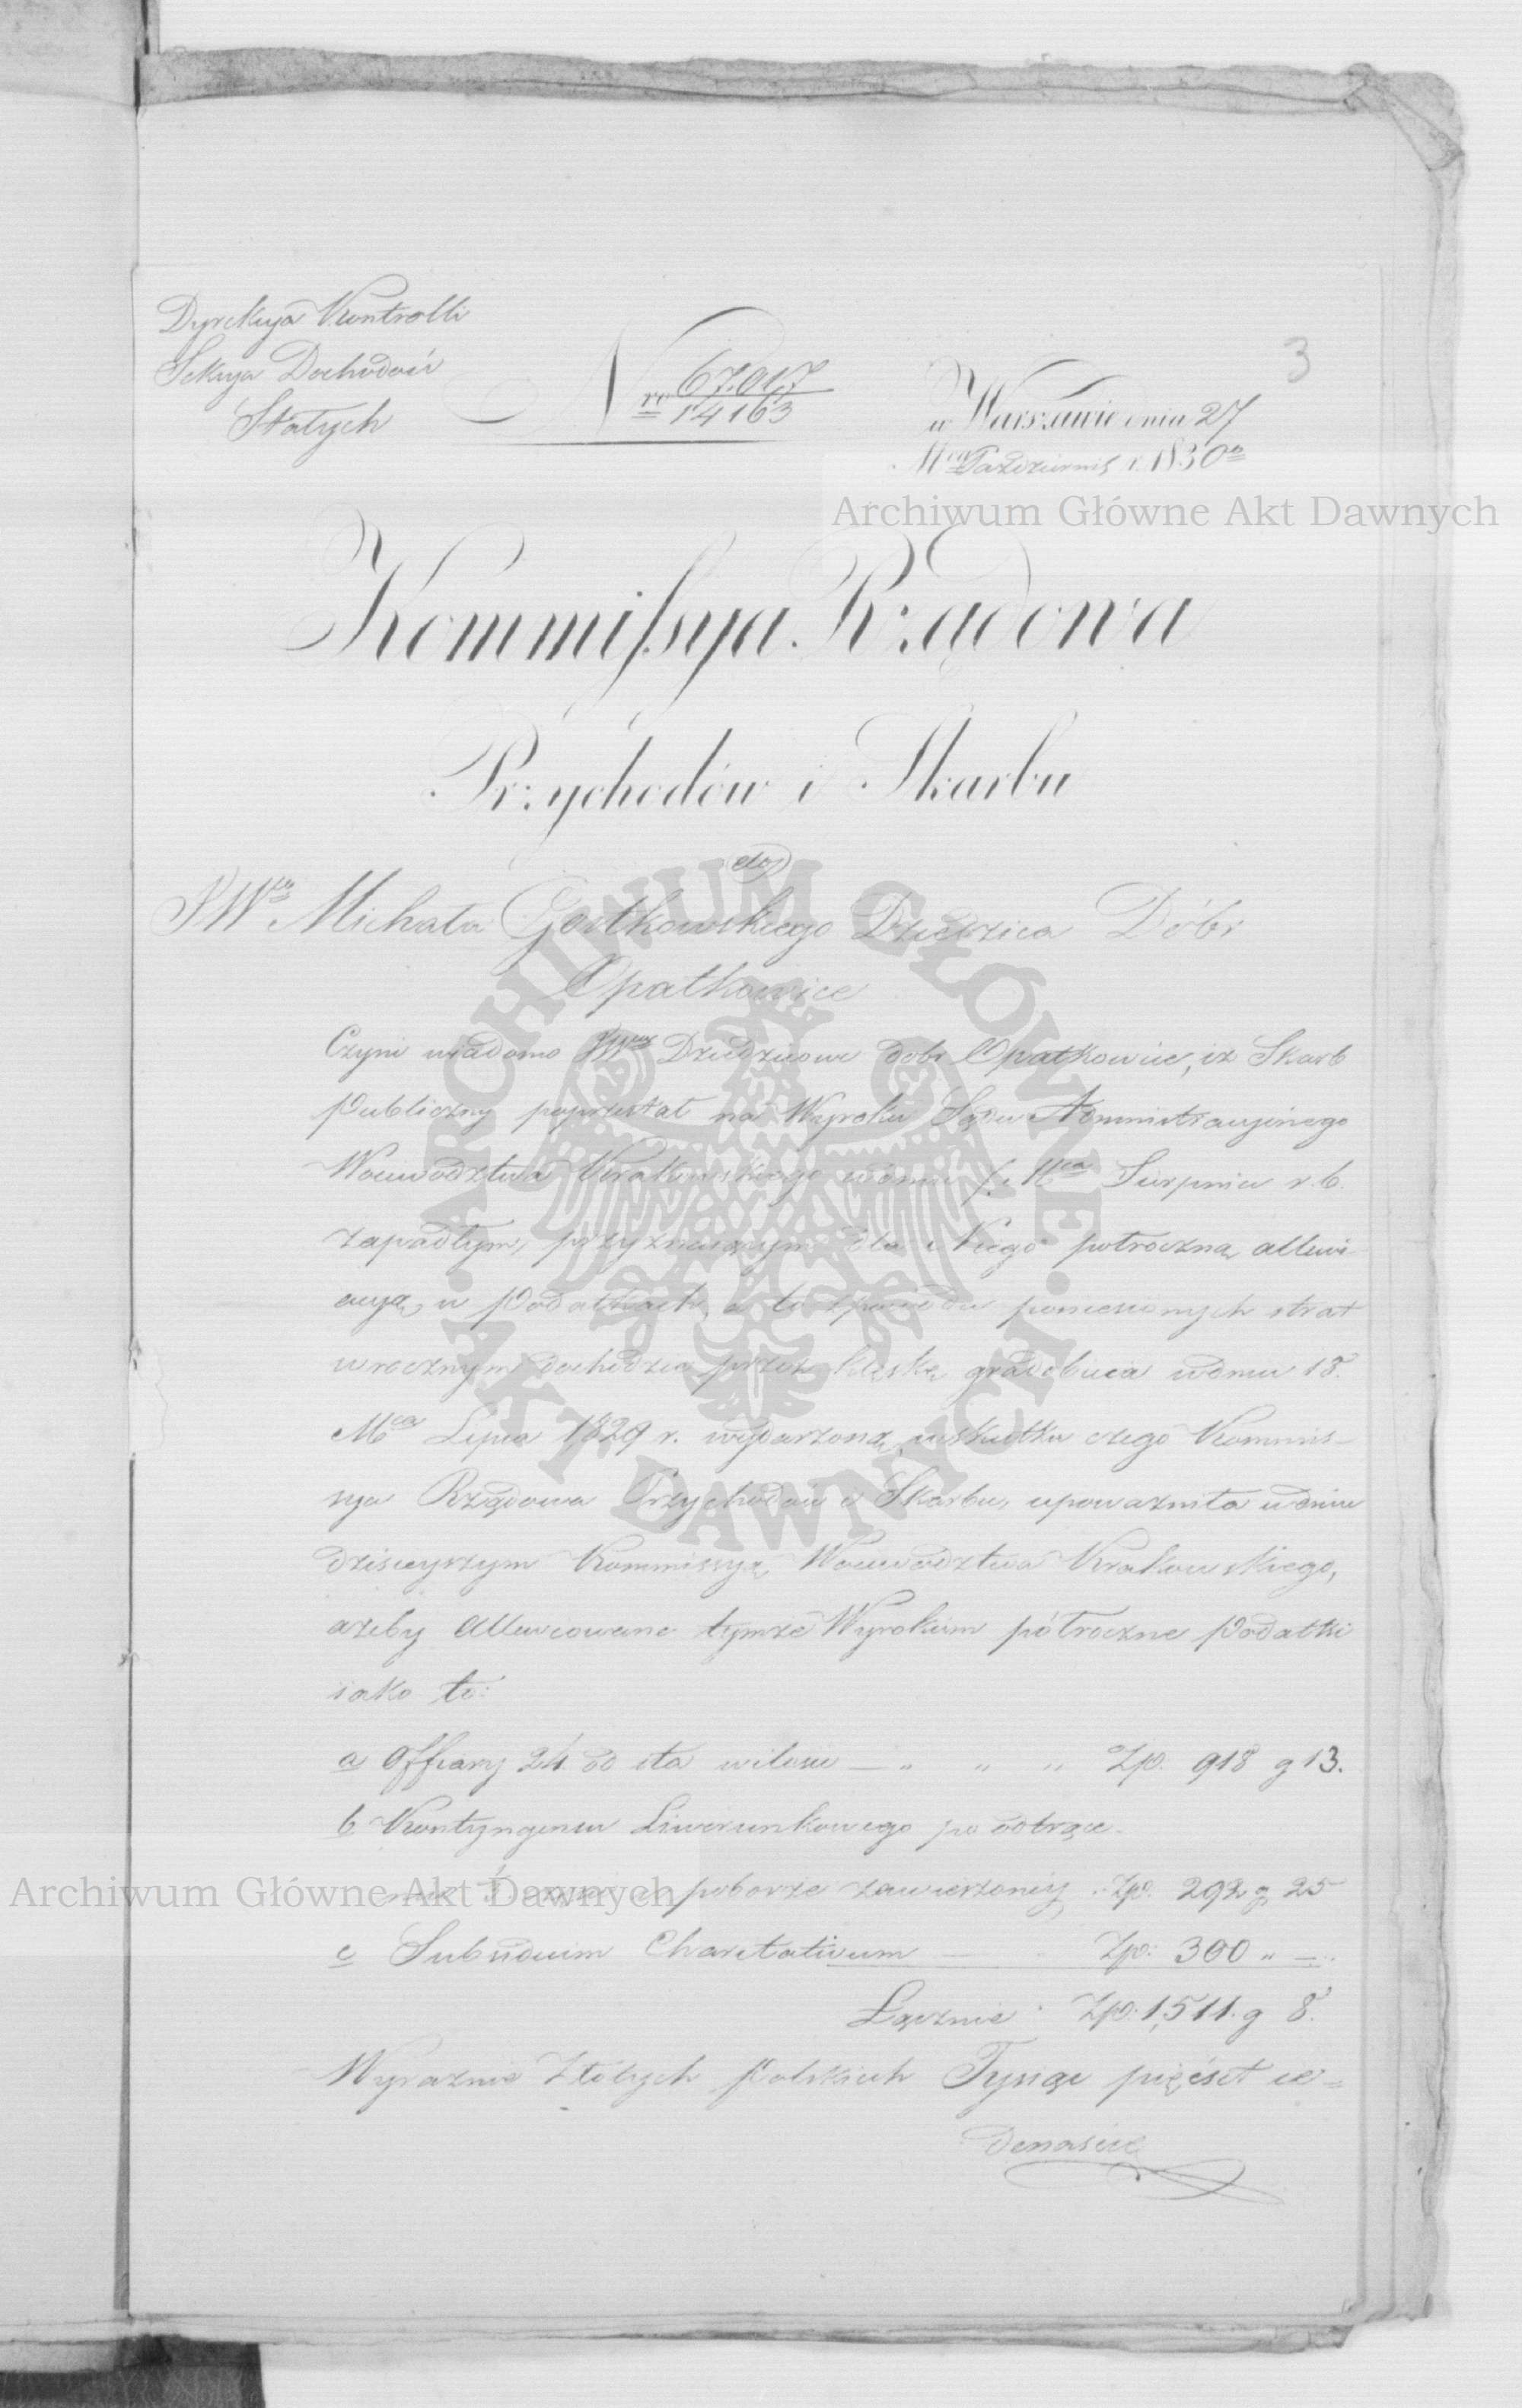 Dyrekcya Kontrolli
Sekcya Dochodów
Stałych
Nro 67.017
14163
3
w Warszawie dnia 27
Mca Paźdzиernik r. 1830o
Archiwum Główne Akt Dawnych
Kommissya Rządowa
Przychodów i Skarbu
do
JWgo Michała Gostkowskiego Dziedzica Dóbr
Opatkowice
Czyni wiadomo Dziedzicowi dóbr Opatkowice, iż Skarb
Publiczny poprzestał na Wyroku Sądu Administracyinego
Woiewództwa Krakowskiego w dniu Mca Sierpnia r. b.
zapadłym, przyznaiącym dla Niego półroczną allewi-
acyą w Podatkach, a to z powodu poniesionych strat
w rocznym dochodzie przez klęskę gradobicia w dniu 18.
Mca Lipca 1829 r. wydarzoną, w skutku czego Kommis-
sya Rządowa Przychodów i Skarbu, upoważniła w dniu
dzisieyszym Kommissyą Woiewództwa Krakowskiego,
ażeby allewiowane tymże Wyrokiem półroczne Podatki
iako to:
a Offiary 24 do sta w ilości — „ „ „ Zp. 918 g 13.
b Kontyngensu Liwerunkowego po odtrące-
niu części w poborze zawieszoney Zp. 292 g 25
Archiwum Główne Akt Dawnych
c Subsidium Charitativum — Zp: 300 „ —
Łącznie Zp. 1,511. g 8.
Wyraźnie Złotych Polskich Tysiąc pięćset ie-
denaście
ARCHIWUM GŁÓWNE AKT DAWNYCH